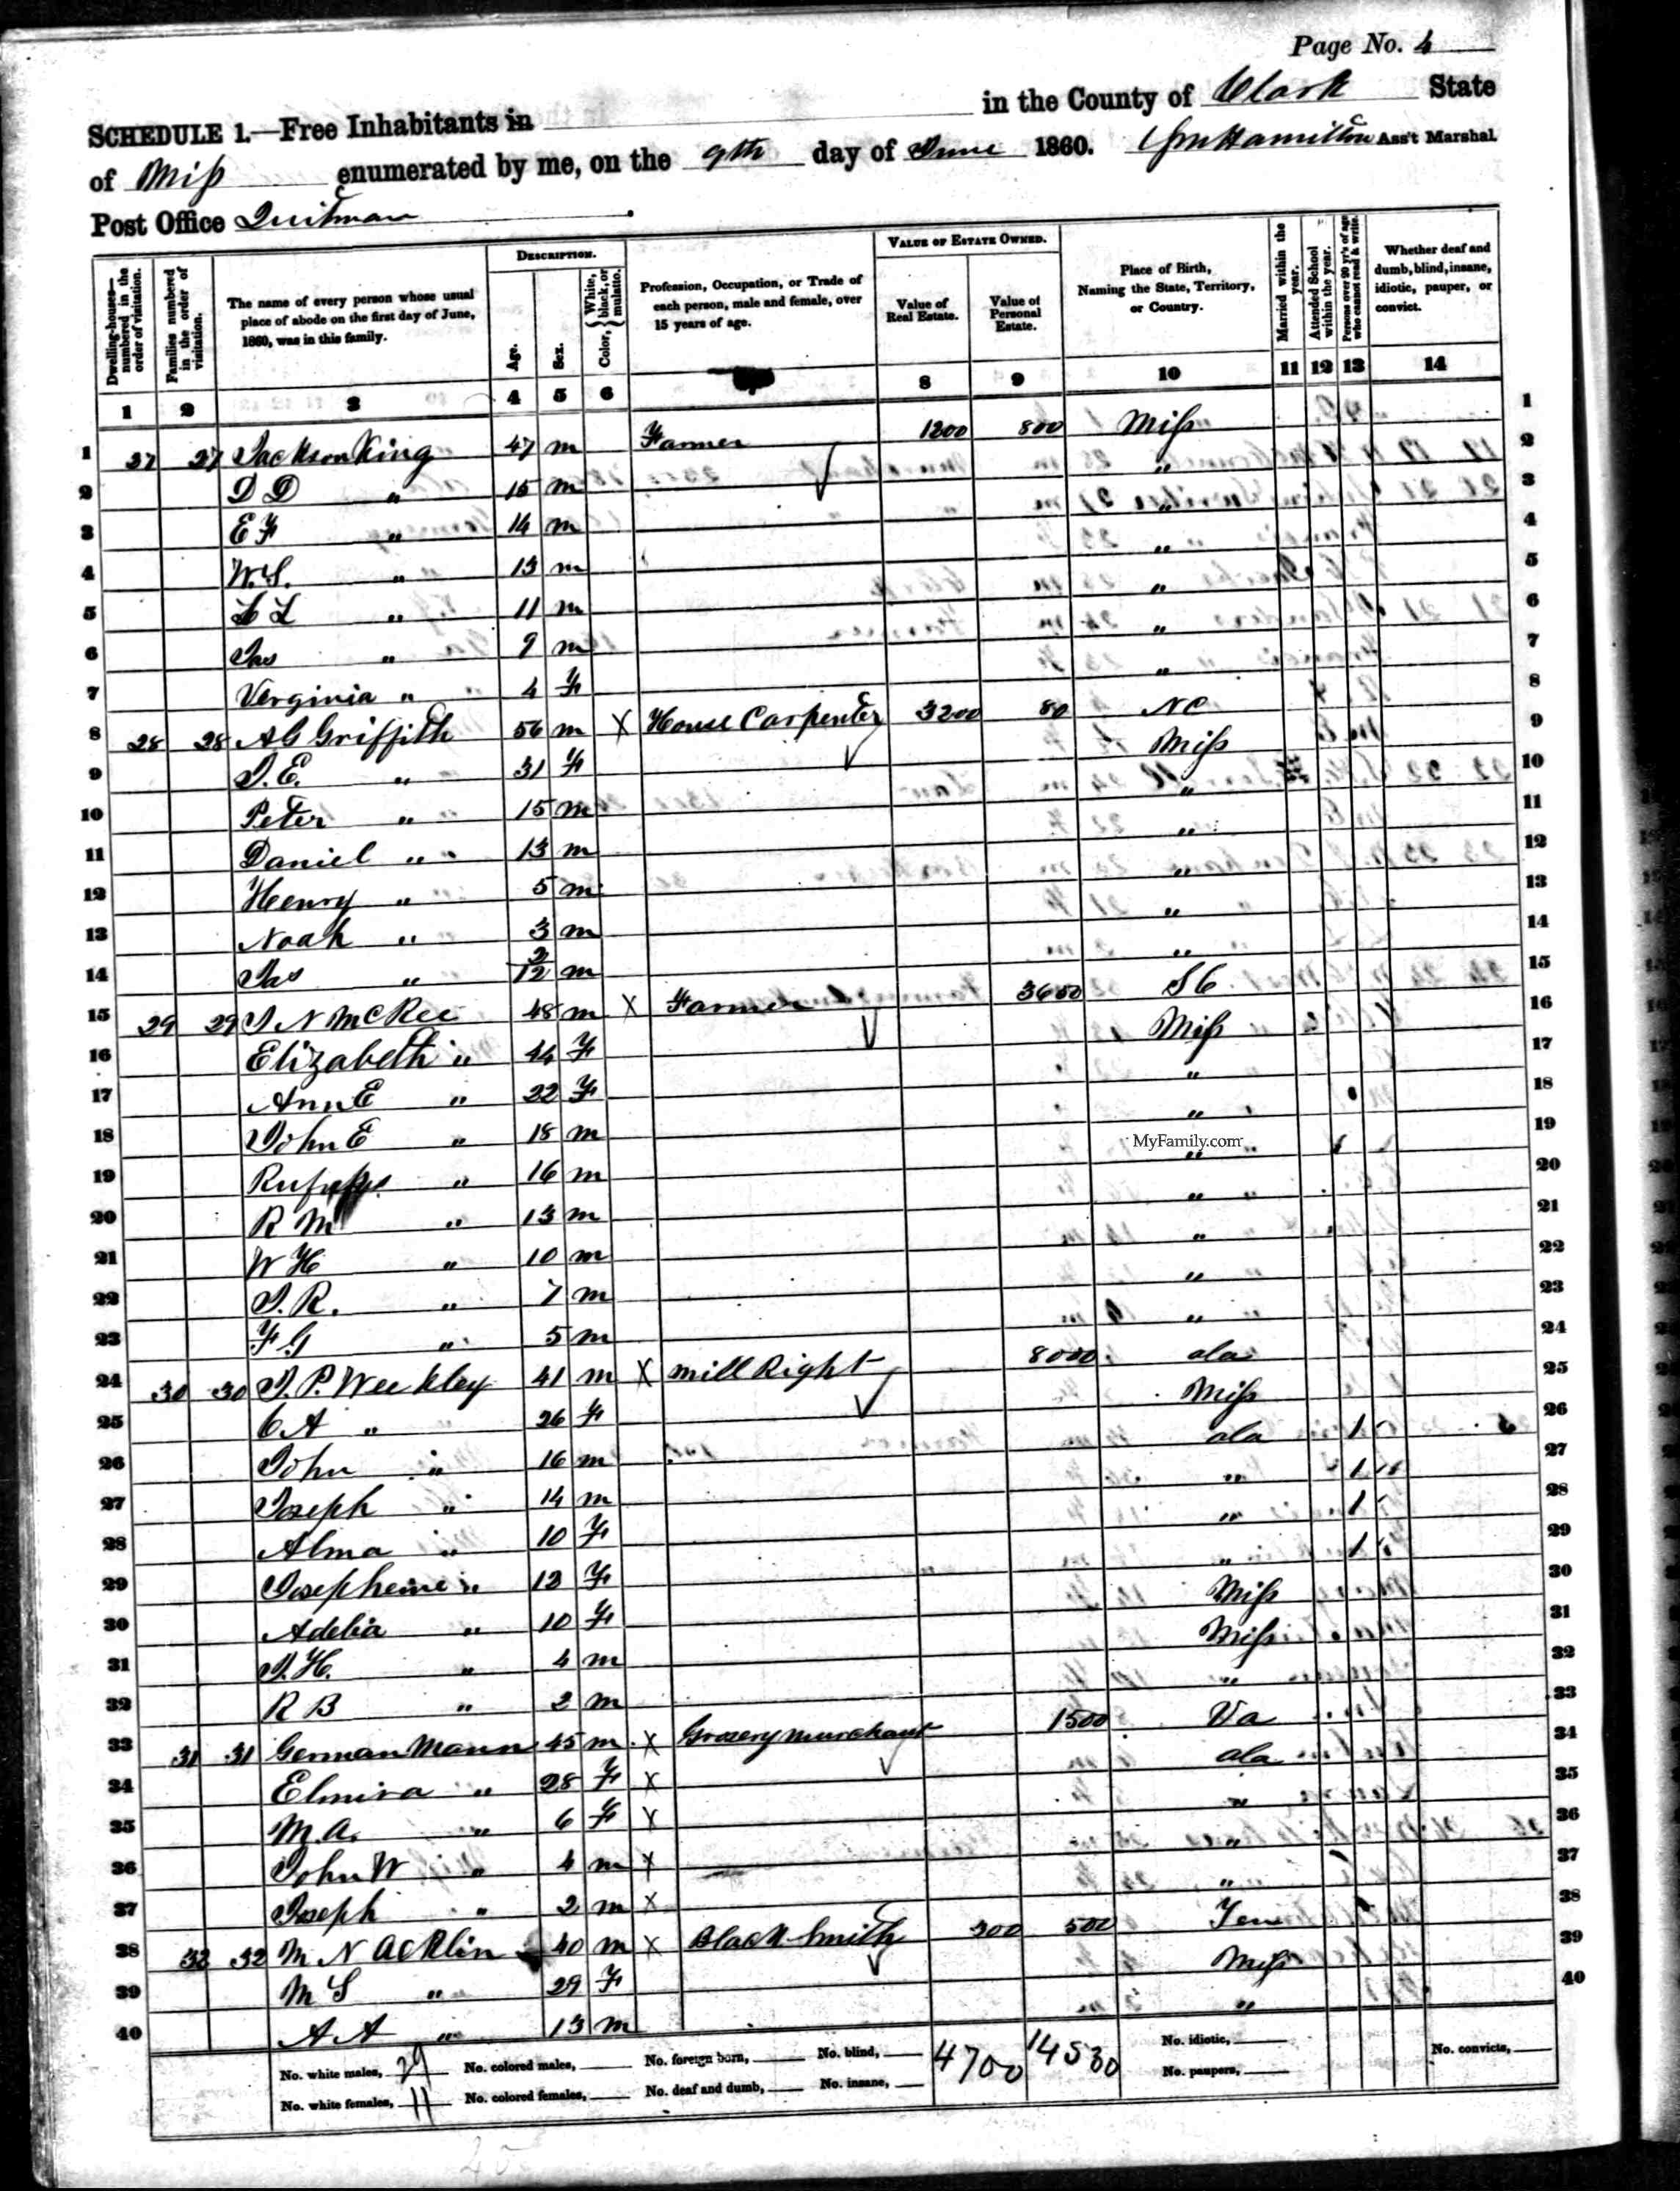 Page No. 4
SCHEDULE 1.—Free Inhabitants in in the County of Clark State
of Miss enumerated by me, on the 9th day of June 1860. Hamilton Ass't Marshal.
Post Office Quitman
Dwelling-houses—numbered in the order of visitation.
Families numbered in the order of visitation.
The name of every person whose usual place of abode on the first day of June, 1860, was in this family.
DESCRIPTION.
Age.
Sex.
Color, { White, black, or mulatto.
Profession, Occupation, or Trade of each person, male and female, over 15 years of age.
VALUE OF ESTATE OWNED.
Value of Real Estate.
Value of Personal Estate.
Place of Birth, Naming the State, Territory, or Country.
Married within the year.
Attended School within the year.
Persons over 20 yr's of age who cannot read & write.
Whether deaf and dumb, blind, insane, idiotic, pauper, or convict.
1 2 3 4 5 6 8 9 10 11 12 13 14
1 27 27 Jackson King 47 m Farmer 1200 800 Miss 1
2 D D " 15 m " 2
3 E F " 14 m " 3
4 W.S. " 13 m " 4
5 L L " 11 m " 5
6 Jas " 9 m " 6
7 Verginia " 4 F " 7
8 28 28 A C Griffith 56 m X House Carpenter 3200 80 NC 8
9 J.E. " 31 F Miss 9
10 Peter " 15 m " 10
11 Daniel " 13 m " 11
12 Henry " 5 m " 12
13 Noah " 3 m " 13
14 Jas " 2/12 m " 14
15 29 29 J N McRee 48 m X Farmer 3650 SC 15
16 Elizabeth " 44 F Miss 16
17 Ann E " 22 F " 17
18 John E " 18 m " 18
19 Rufus " 16 m " 19
20 R M " 13 m " 20
21 W H " 10 m " 21
22 J.R. " 7 m " 22
23 F G " 5 m " 23
24 30 30 J.P. Weekley 41 m X mill Right 8000 ala 24
25 C A " 26 F Miss 25
26 John " 16 m ala 1 26
27 Joseph " 14 m " 1 27
28 Alma " 10 F " 1 28
29 Josepheine " 13 F " 1 29
30 Adelia " 10 F Miss 30
31 J.H. " 4 m Miss 31
32 R B " 2 m " 32
33 31 31 German Mann 45 m X Grosery murchant 1500 Va 33
34 Elmira " 28 F X ala 34
35 M.A. " 6 F X " 35
36 John W " 4 m X " 36
37 Joseph " 2 m X " 37
38 32 32 M N Acklin 40 m X Black Smith 300 500 Ten 38
39 M S " 29 F Miss 39
40 A A " 13 m " 40
MyFamily.com
No. white males, 29 No. colored males, No. foreign born, No. blind, 4700 14530 No. idiotic, No. convicts,
No. white females, 11 No. colored females, No. deaf and dumb, No. insane, No. paupers,